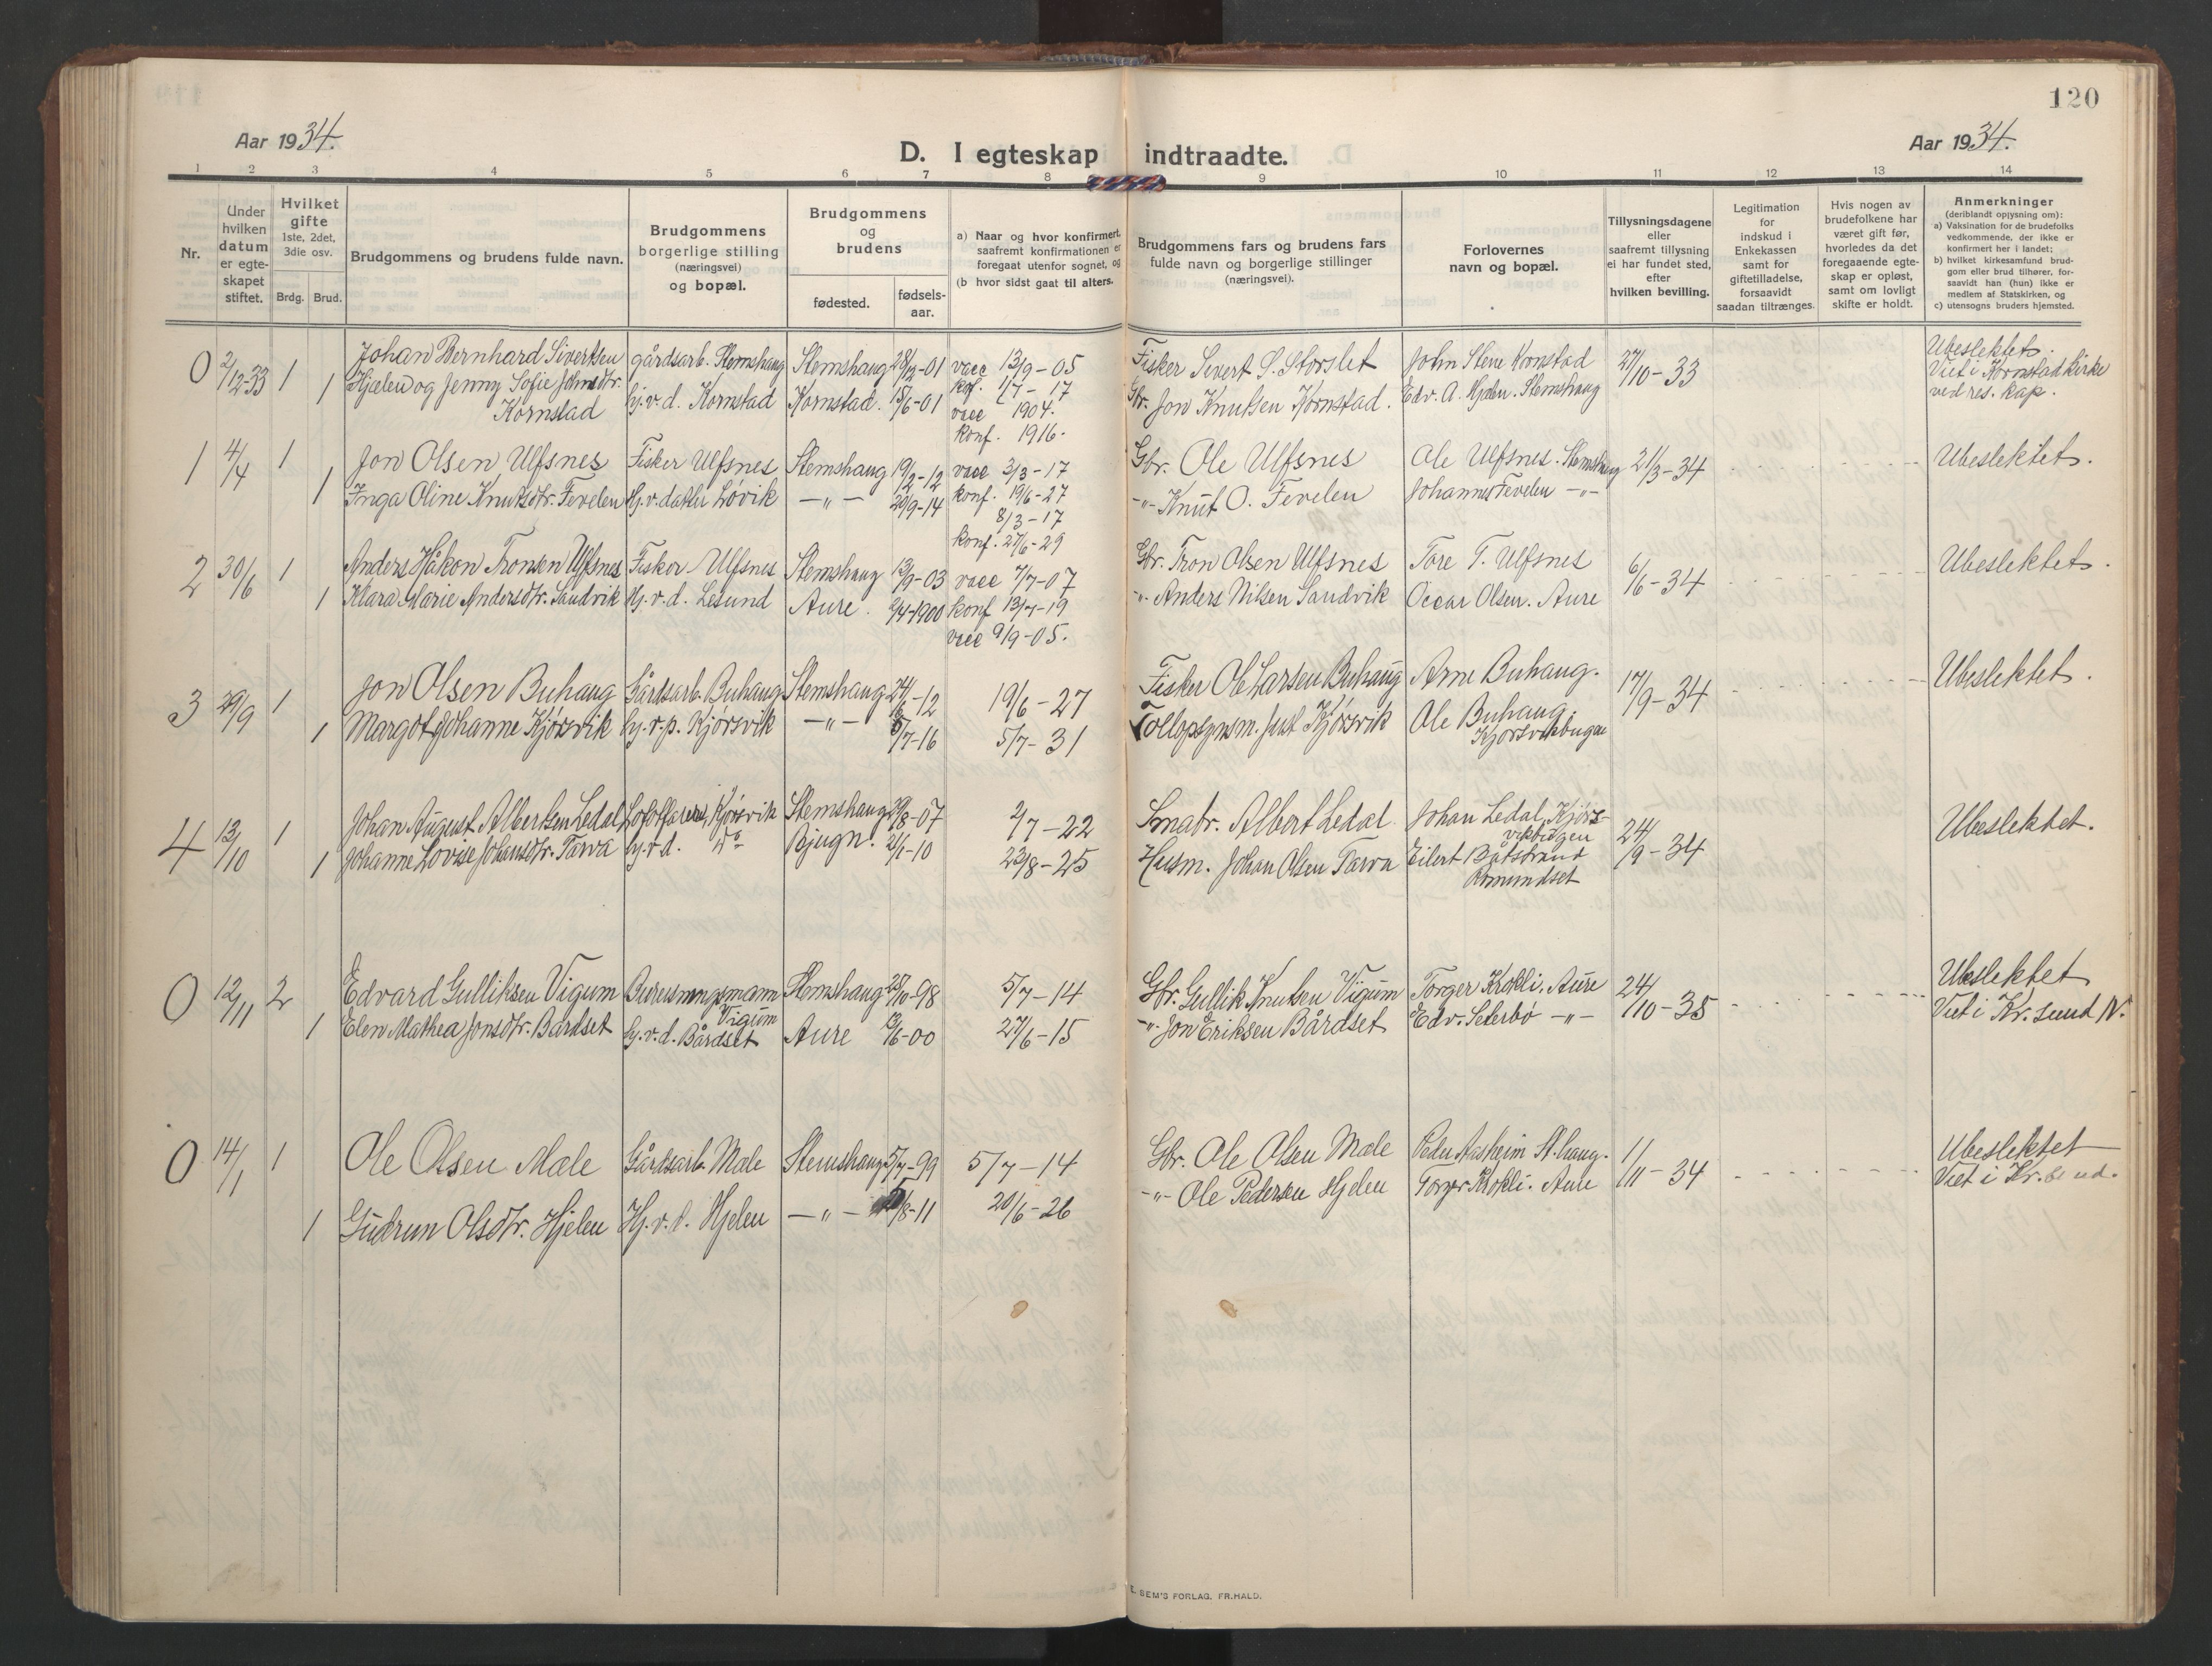 120
Aar 1934.
D. I egteskap indtraadte.
Aar 1934.
1 2 3 4 5 6 7 8 9 10 11 12 13 14
Nr.
Under hvilken datum er egteskapet stiftet.
Hvilket gifte 1ste, 2det, 3die osv.
Brdg. Brud.
Brudgommens og brudens fulde navn.
Brudgommens borgerlige stilling (næringsvei) og bopæl.
Brudgommens og brudens
fødested.
fødsels-aar.
a) Naar og hvor konfirmert, saafremt konfirmationen er foregaat utenfor sognet, og (b hvor sidst gaat til alters.
Brudgommens fars og brudens fars fulde navn og borgerlige stillinger (næringsvei).
Forlovernes navn og bopæl.
Tillysningsdagene eller saafremt tillysning ei har fundet sted, efter hvilken bevilling.
Legitimation for indskud i Enkekassen samt for giftetilladelse, forsaavidt saadan tiltrænges.
Hvis nogen av brudefolkene har været gift før, hvorledes da det foregaaende egteskap er opløst, samt om lovligt skifte er holdt.
Anmerkninger (deriblandt opjysning om): a) Vaksination for de brudefolks vedkommende, der ikke er konfirmert her i landet; b) hvilket kirkesamfund brudgom eller brud tilhører, forsaavidt han (hun) ikke er medlem af Statskirken, og c) utensogns bruders hjemsted.
0 2/12-33 1 Johan Bernhard Sivertsen gårdsarb. Stemshaug Stemshaug 28/2-01 vacc 13/9-05 Fisker Sivert S. Storslet John Stene Kornstad 27/10-33 Ubeslektet.
1 Hjælen og Jenny Sofie Johnsdtr. Kornstad hj.v.d. Kornstad Kornstad. 15/6-01 kof. 1/7-17 Gbr. Jon Knutsen Kornstad. Edv. A. Hjelen. Stemshaug Viet i Kornstad kirke
vacc 1904. ved res. kap.
konf. 1916.
1 4/4 1 Jon Olsen Ulfsnes Fisker Ulfsnes Stemshaug 19/2-12 vacc 3/3-17 Gbr. Ole Ulfsnes Ole Ulfsnes. Stemshaug 21/3-34 Ubeslektet.
1 Inga Oline Knutsdtr. Fevelen Hj.v. datter Løvik -"- 20/9-14 konf. 19/6-27 -"- Knut O. Fevelen Johannes Fevelen -"-
8/3-17
konf. 27/6-29
2 30/6 1 Anders Håkon Tronsen Ulfsnes Fisker Ulfsnes Stemshaug 13/9-03 vacc 7/7-07 Gbr. Tron Olsen Ulfsnes Tore T. Ulfsnes 6/6-34 Ubeslektet.
1 Klara Marie Andersdtr. Sandvik Hj.v.d. Lesund Aure. 9/4-1900 konf 13/7-19 "- Anders Nilsen Sandvik Oscar Olsen. Aure
vacc 9/9-05.
3 29/9 1 Jon Olsen Buhaug Gårdsarb. Buhaug Stemshaug 24/6-12 19/6-27 Fisker Ole Larsen Buhaug Arne Buhaug. 17/9-34 Ubeslektet.
1 Margot Johanne Kjørsvik hj.v.p. Kjørsvik -"- 7-16 5/7-31 Tollopsynsm. Just Kjørsvik Ole Buhaug. Kjørsvikbugen
4 13/10 1 Johan August Albertsen Ledal Lofotfarer, Kjørsvik Stemshaug 29/8-07 2/7-22 Smabr. Albert Ledal Johan Ledal, Kjørsvikbugen 24/9-34 Ubeslektet.
1 Johanne Lovise Johansdtr. Tarva hj.v.d. Do Bjugn. 2/1-10 23/8-25 Husm. Johan Olsen Tarva Eilert Båtstrand Romundset
0 12/11 2 Edvard Gulliksen Vigum Bureisningsmann Vigum Stemshaug 25/10-98 5/7-14 Gbr. Gullik Knutsen Vigum Torger Krokli. Aure 24/10-35 Ubeslektet
1 Elen Mathea Jonsdtr. Bårdset hj.v.d. Bårdset Aure 13/6-00 27/6-15 "- Jon Eriksen Bårdset Edv. Seterbø -"- Viet i Kr.sund N.
0 14/1 1 Ole Olsen Mæle Gårdsarb. Mæle Stemshaug 5/7-99 5/7-14 Gbr. Ole Olsen Mæle Peder Aasheim St.haug. 1/11-34 Ubeslektet
1 Gudrun Olsdtr. Hjelen Hj.v.d. Hjelen -"- 8-11 20/6-26 -"- Ole Pedersen Hjelen Torger Krokli. Aure Viet i Kr.sund.
E. SEM'S FORLAG. FR.HALD.